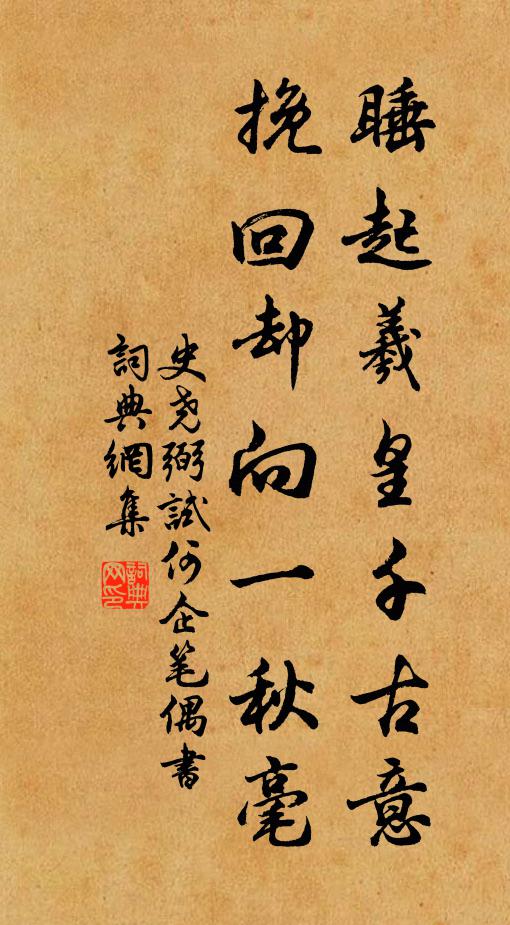 睡起羲皇千古意
挽回却向一秋毫
史尧弼試何企笔偶書
詞典網集
詞典网印